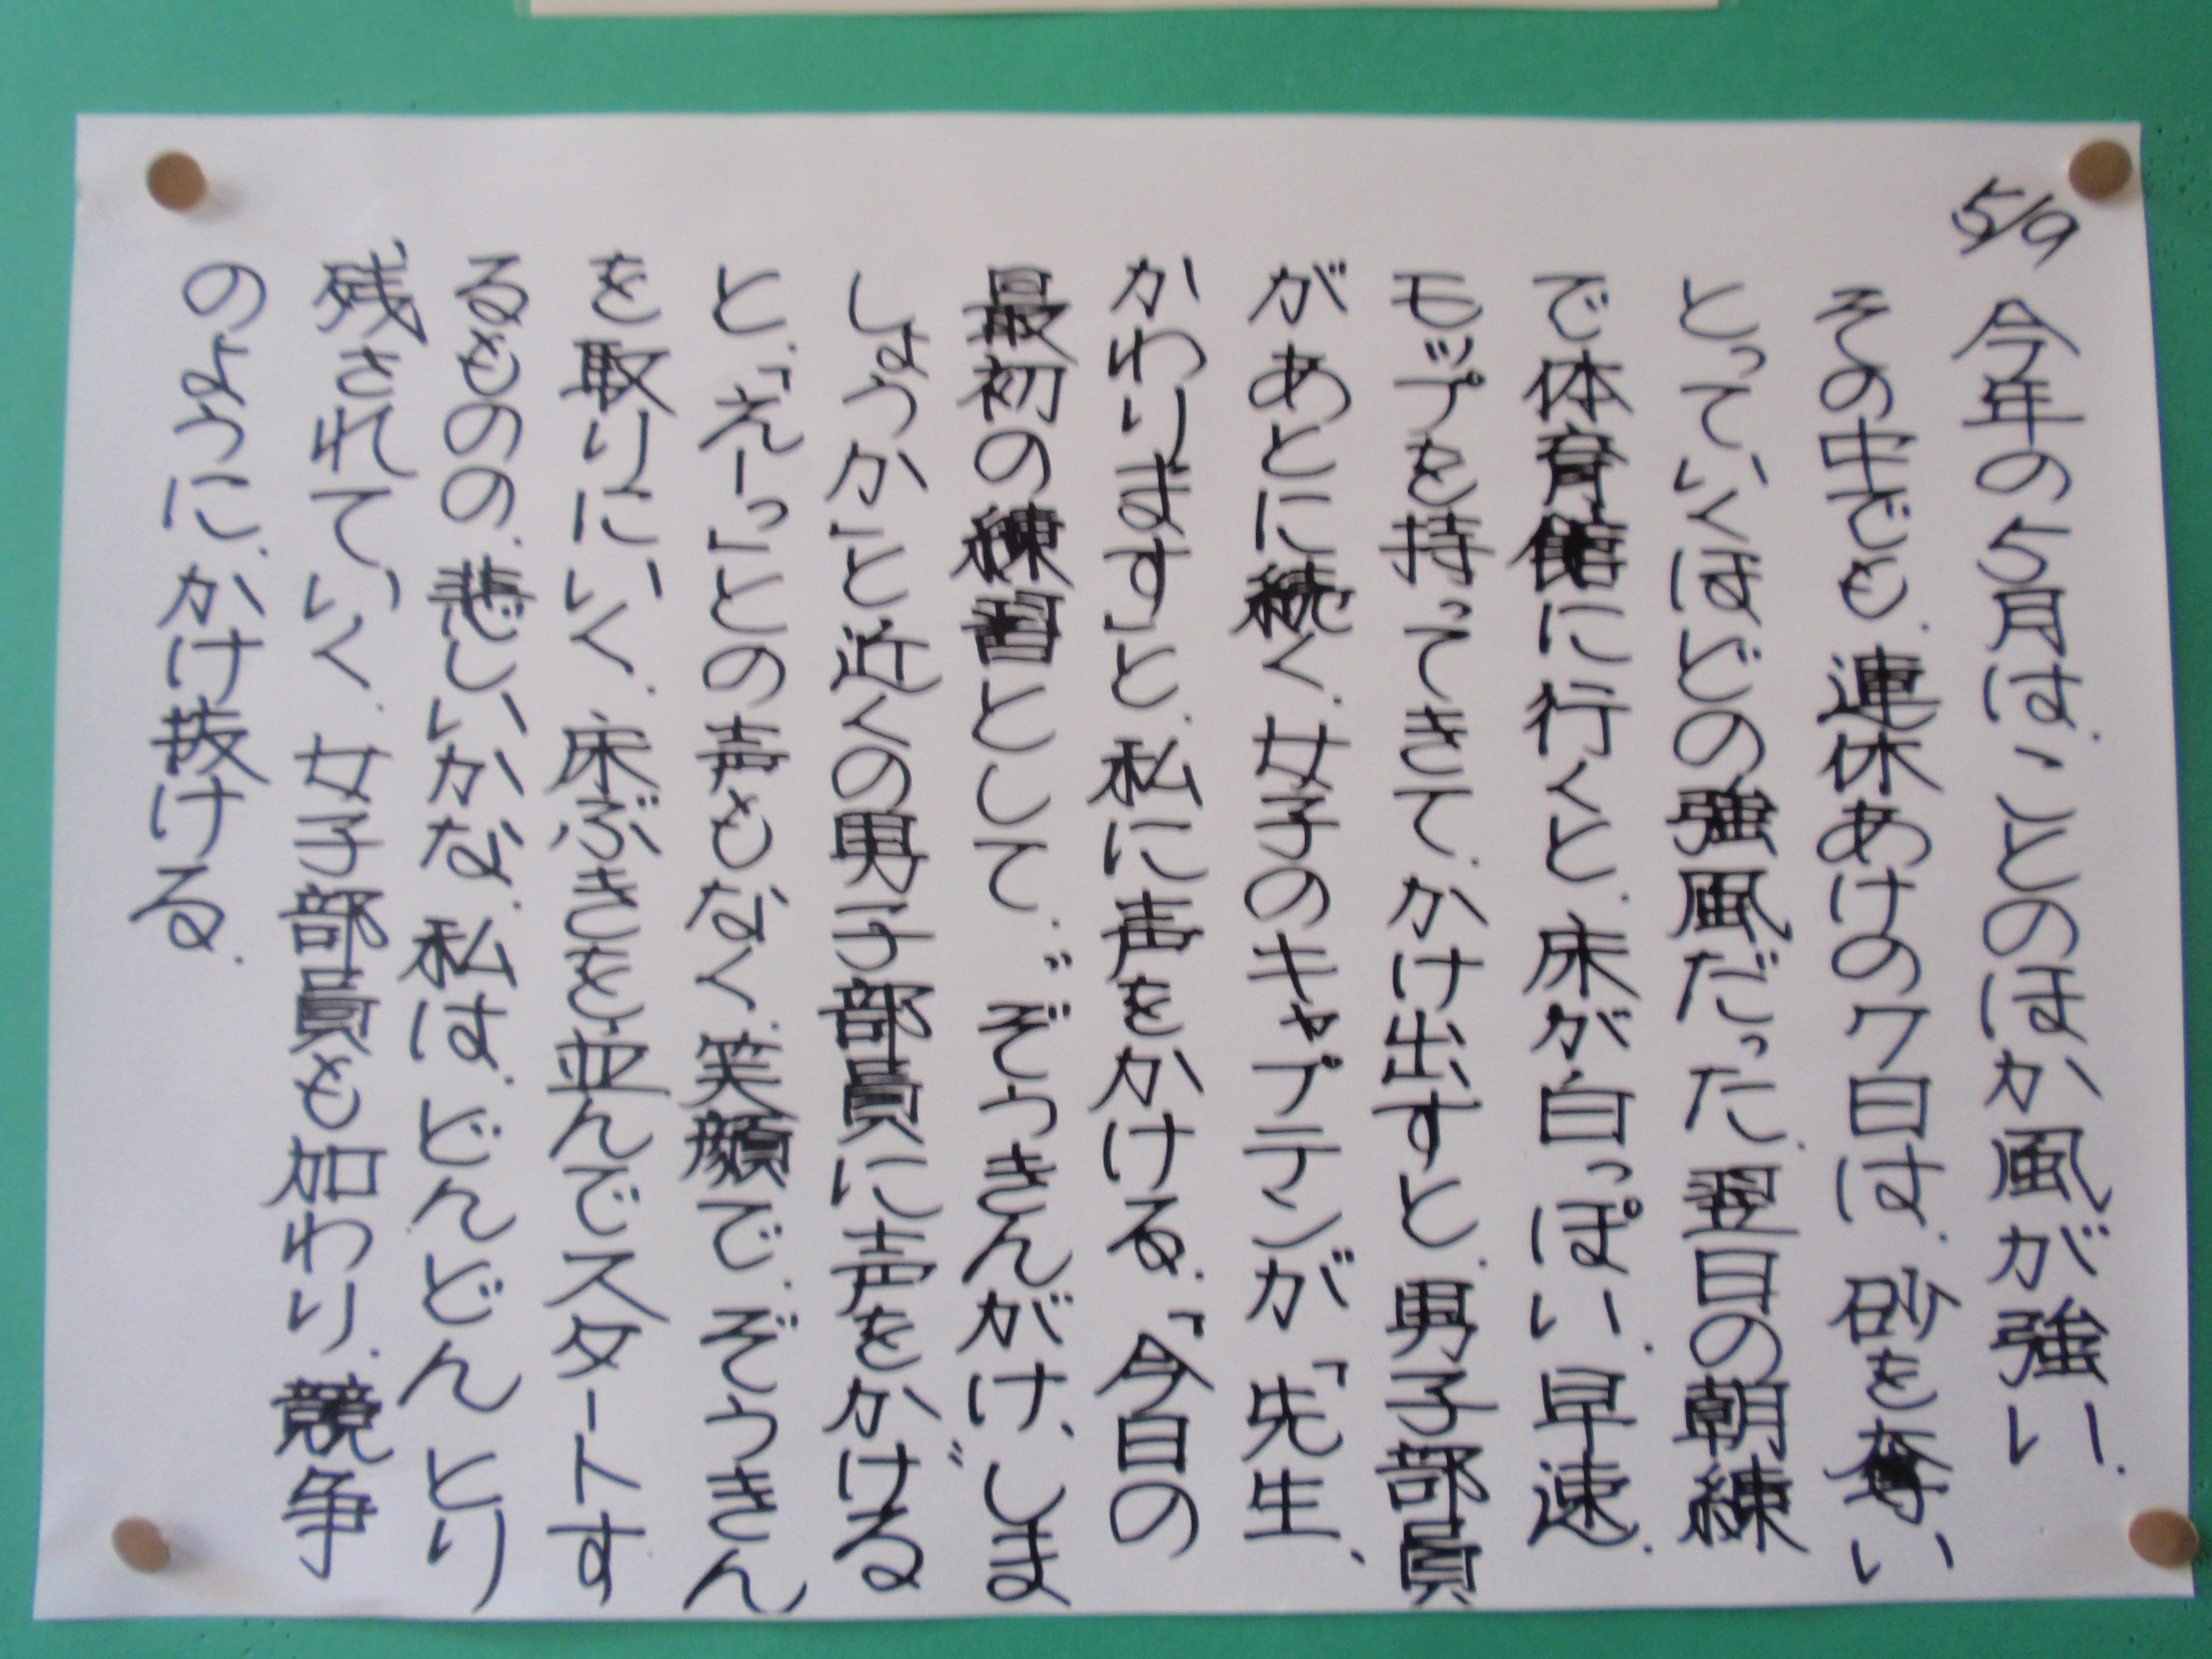 5/9 今年の5月は、ことのほか風が強い。
その中でも、連休あけの7日は、砂を奪い
とっていくほどの強風だった。翌日の朝練
で体育館に行くと、床が白っぽい。早速、
モップを持ってきて、かけ出すと、男子部員
があとに続く。女子のキャプテンが「先生、
かわります」と、私に声をかける。「今日の
最初の練習として、〝ぞうきんがけ〟しま
しょうか」と近くの男子部員に声をかける
と、「えーっ」との声もなく、笑顔で、ぞうきん
を取りにいく。床ぶきを並んでスタートす
るものの、悲しいかな、私は、どんどんとり
残されていく。女子部員も加わり、競争
のように、かけ抜ける。